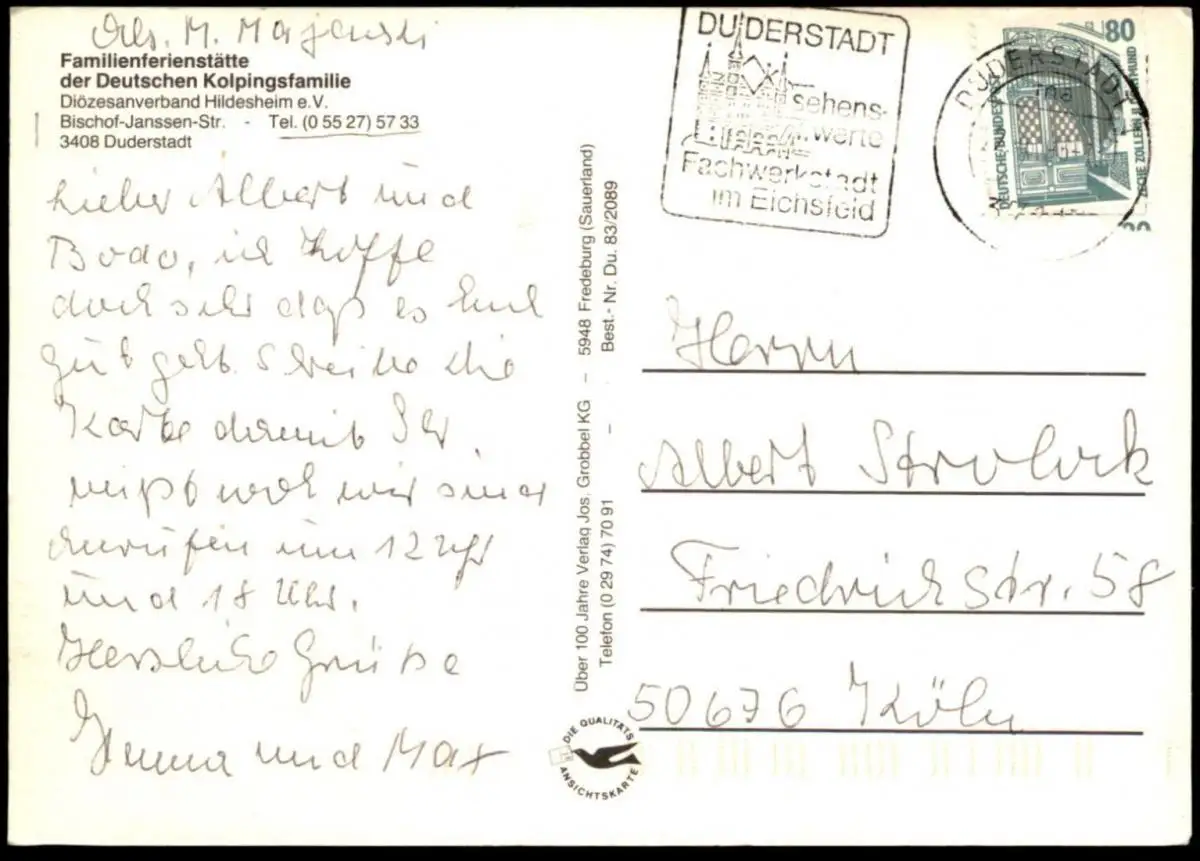 Abs. M. Majewski
Familienferienstätte
der Deutschen Kolpingsfamilie
Diözesanverband Hildesheim e.V.
Bischof-Janssen-Str. - Tel. (0 55 27) 57 33
3408 Duderstadt
Lieber Albert und
Bodo, ich hoffe
doch sehr daß es Euch
gut geht. Schreibe die
Karte damit Ihr
wißt wo wir sind
Anrufen um 12 Uhr
und 18 Uhr.
Herzliche Grüße
und Max
Über 100 Jahre Verlag Jos. Grobbel KG – 5948 Fredeburg (Sauerland)
Telefon (0 29 74) 70 91 – Best.- Nr. Du. 83/2089
DIE QUALITÄTS
ANSICHTSKARTE
DUDERSTADT
sehens-
werte
Fachwerkstadt
im Eichsfeld
DUDERSTADT 1
80
DEUTSCHE BUNDESPOST
ZECHE ZOLLERN II DORTMUND
Herrn
Albert
Friedrichstr. 58
50676 Köln